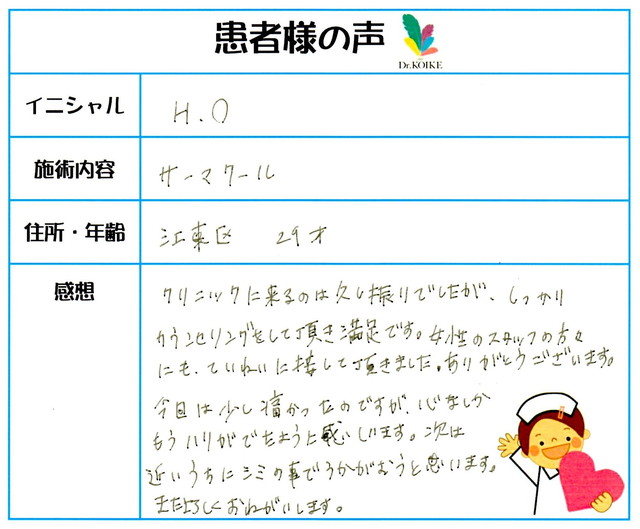 患者様の声
Dr.KOIKE
イニシャル
H.O
施術内容
サーマクール
住所・年齢
江東区 29才
感想
クリニックに来るのは久し振りでしたが、しっかり
カウンセリングをして頂き満足です。女性のスタッフの方々
にも、ていねいに接して頂きました。ありがとうございます。
今回は少し痛かったのですが、心なしか
もうハリがでたように感じします。次は
近いうちにシミの事でうかがおうと思います。
またよろしくおねがいします。